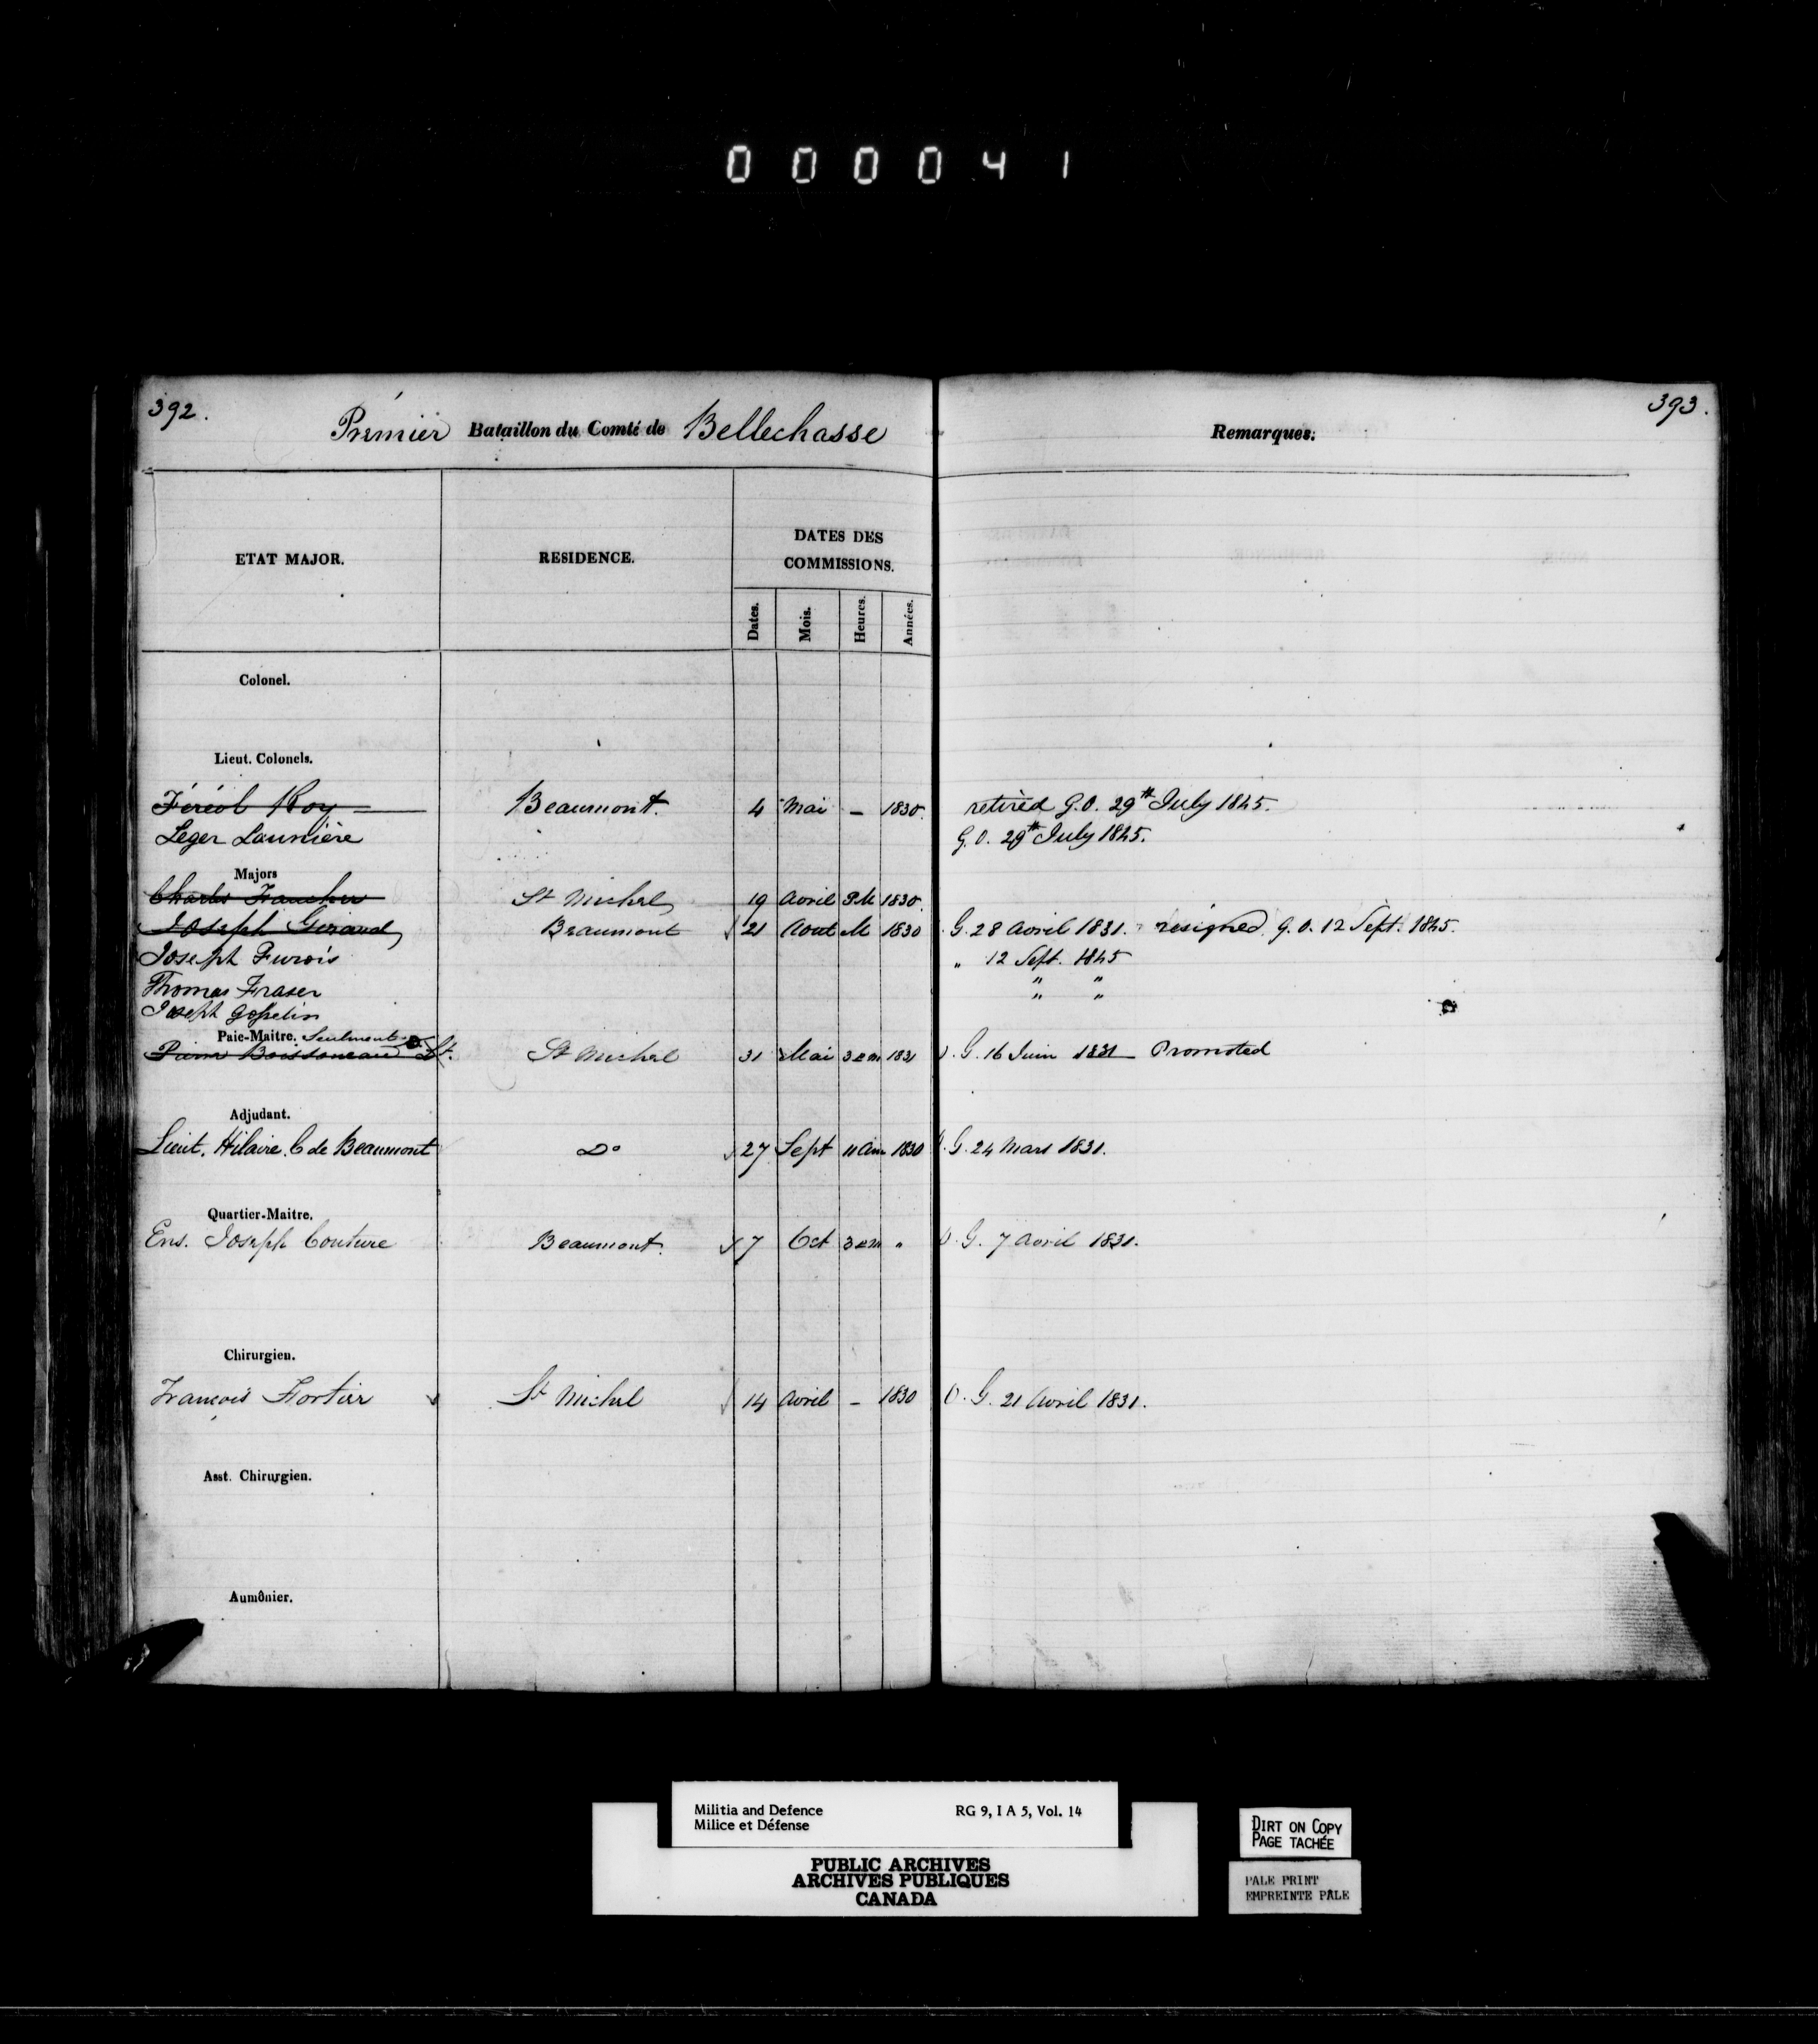 000041
392.
393.
Premier Bataillon du Comté de Bellechasse
Remarques.
ETAT MAJOR.
RESIDENCE.
DATES DES
COMMISSIONS.
Dates. Mois. Heures. Années.
Colonel.
Lieut. Colonels.
Féréol Roy Beaumont. 4 Mai – 1830. retired G.O. 29th July 1845.
Leger Launière G.O. 29th July 1845.
Majors
Charles St Michel 19 Avril PM 1830.
Joseph Giraud Beaumont 21 Aout M 1830 G. 28 Avril 1831. resigned G.O. 12 Sept. 1845.
Joseph Turois " 12 Sept. 1845
Thomas Fraser " "
Joseph Gosselin " "
Paie-Maitre. Seulement
Pierre Boissoneau Lt. St Michel 31 Mai 3 1831 O.G. 16 Juin 1831 Promoted
Adjudant.
Lieut. Hilaire C de Beaumont Do 27 Sept 11 am 1830 O.G. 24 Mars 1831.
Quartier-Maitre.
Ens. Joseph Couture Beaumont. 7 Oct 3 " O.G. 7 Avril 1831.
Chirurgien.
François Fortier St Michel 14 Avril – 1830 O.G. 21 Avril 1831.
Asst. Chirurgien.
Aumônier.
Militia and Defence RG 9, I A 5, Vol. 14
Milice et Défense
PUBLIC ARCHIVES
ARCHIVES PUBLIQUES
CANADA
DIRT ON COPY
PAGE TACHÉE
PALE PRINT
EMPREINTE PÂLE